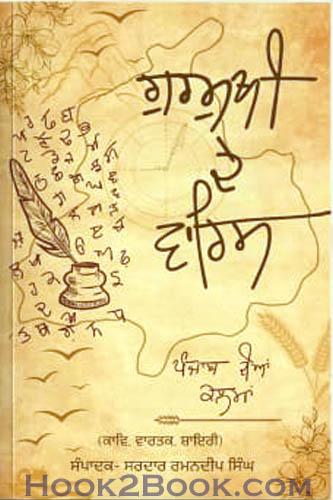 ਗੁਰਮੁਖੀ
ਦੇ
ਵਾਰਿਸ
ਪੰਜਾਬ ਦੀਆਂ
ਕਲਮਾਂ
(ਕਾਵਿ, ਵਾਰਤਕ, ਸ਼ਾਇਰੀ)
ਸੰਪਾਦਕ- ਸਰਦਾਰ ਰਮਨਦੀਪ ਸਿੰਘ
Hook2Book.com